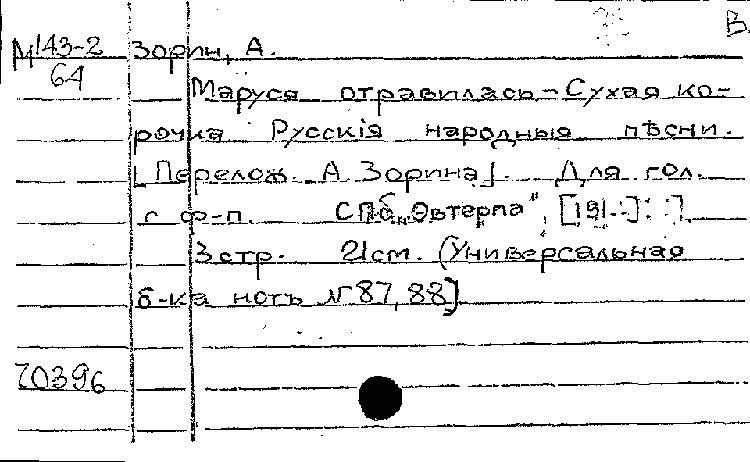 В
М 143-2 Зорин, А.
64
Маруся отравилась - Сухая ко-
рочка Русскія народныя пѣсни.
[Перелож. А. Зорина]. Для гол.
с ф-п. СПб, "Эвтерпа", [191-]
3 стр. 21 см. (Универсальная
б-ка нотъ № 87, 88)
70396